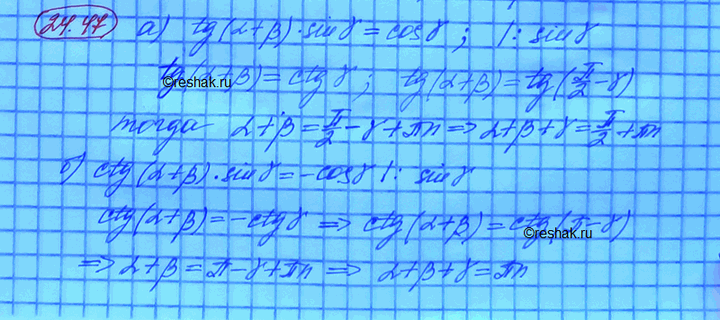 24.47 а) tg(α+β)·sinγ=cosγ; |:sinγ
tg(α+β)=ctgγ; tg(α+β)=tg(π/2-γ)
©reshak.ru
тогда α+β=π/2-γ+πn⇒α+β+γ=π/2+πn
б) ctg(α+β)·sinγ=-cosγ |: sinγ
ctg(α+β)=-ctgγ ⇒ ctg(α+β)=ctg(π-γ)
©reshak.ru
⇒α+β=π-γ+πn⇒ α+β+γ=πn